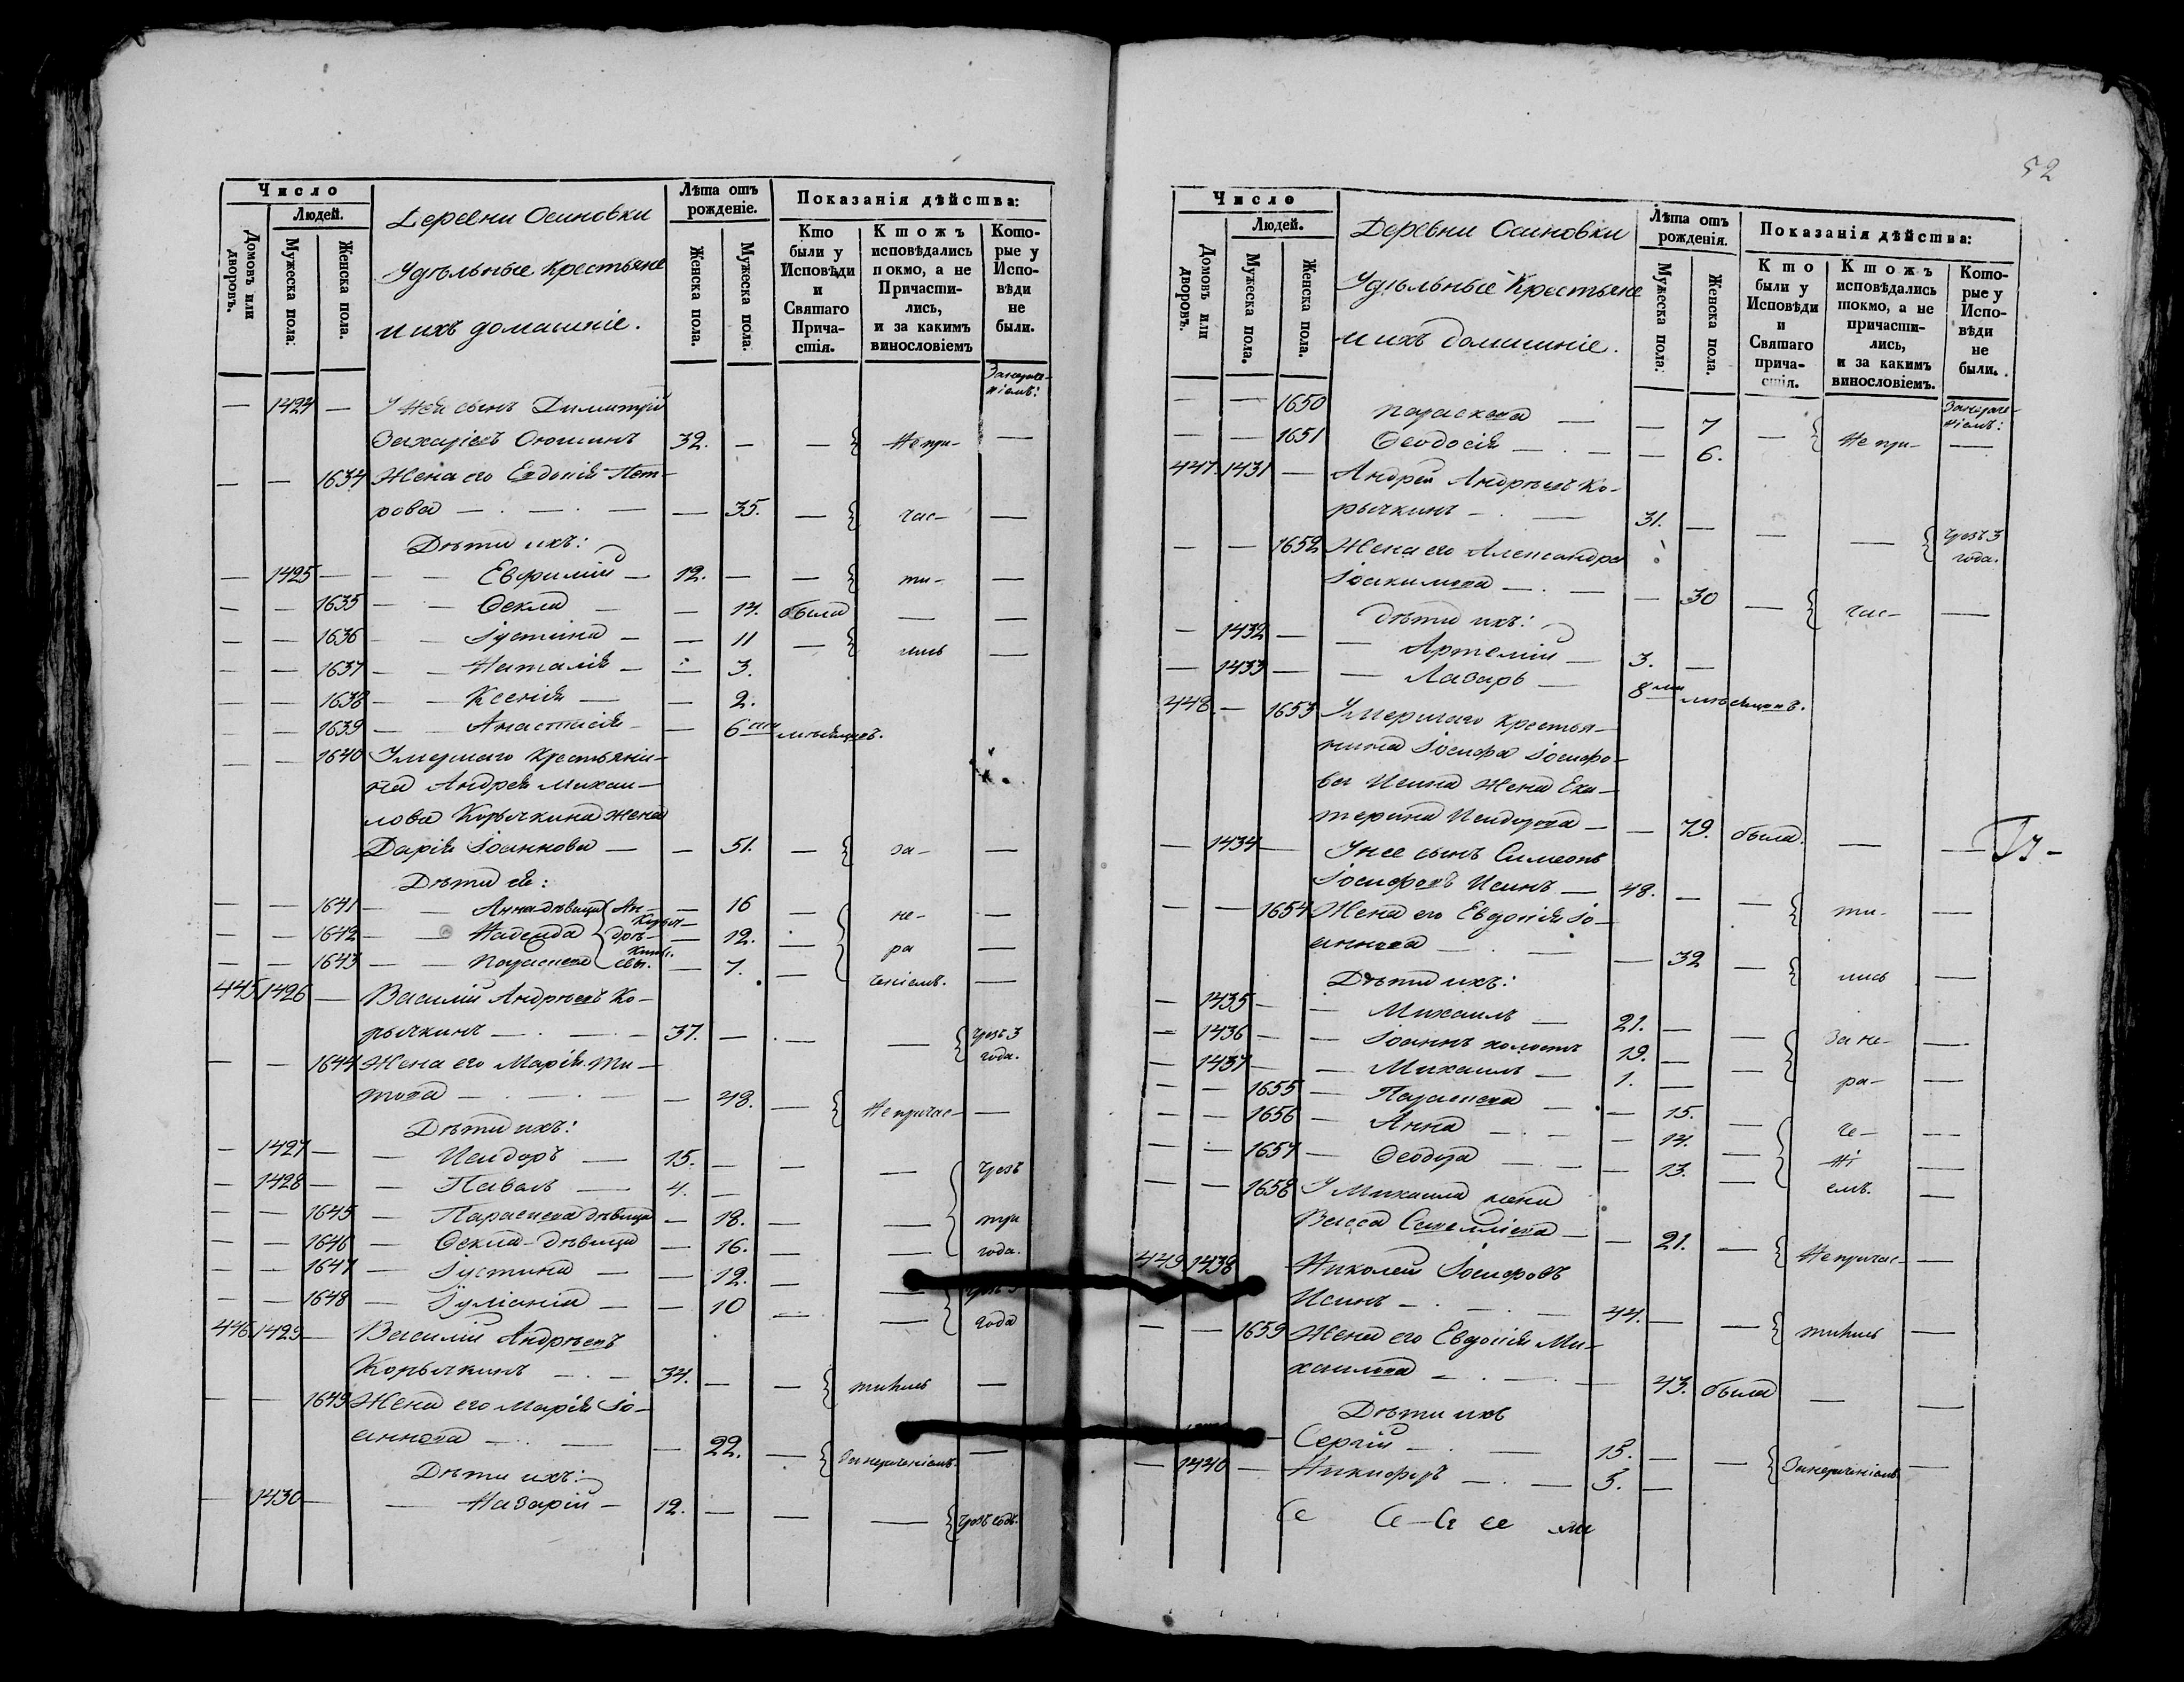 Число
Людей.
Домовъ или дворовъ.
Мужеска пола:
Женска пола.
Деревни Осиновки
Удѣльные Крестьяне
и ихъ домашніе.
Лѣта отъ рожденіе.
Женска пола.
Мужеска пола:
Показанія дѣйства:
Кто были у Исповѣди и Святаго Причастія.
Ктожъ исповѣдались покмо, а не Причастились, и за какимъ винословіемъ
Которые у Исповѣди не были.
— 1424 — У нея сынъ Димитрій
Захаріевъ 32. — — Непри- —
— — 1634 Жена его Евдокія Пет-
рова — — 35. — час- —
Дѣти ихъ:
— 1425 — Евфимій — 12. — — ти- —
— — 1635 — Ѳекла — — 14. была — —
— — 1636 — Іустина — — 11 — лись —
— — 1637 — Наталія — — 3.
— — 1638 — Ксенія — — 2.
— — 1639 — Анастасія — — 6 ти мѣсяцовъ.
— — 1640 Умершаго Крестьяни-
на Андрея Михаи-
лова Корычкина жена
Дарія Іоаннова — — 51. — за- —
Дѣти ея:
— — 1641 — Анна дѣвица — 16 — не- —
— — 1642 — Надежда — 12. — ра —
— — 1643 — Параскева — 7. — ченіемъ. —
445 1426 — Василій Андреевъ Ко-
рычкинъ — 37. — — — Чрезъ 3 года.
— — 1644 Жена его Марія Ти-
това — — 48. — Непричас- —
Дѣти ихъ:
— 1427 — Исидоръ — 15. — — — Чрезъ
— 1428 — Павелъ — 4. —
— — 1645 — Параскева дѣвица — 18. — — три
— — 1646 — Ѳекла дѣвица — 16. — — года.
— — 1647 — Іустина — — 12. — — Чрезъ 3
— — 1648 — Іуліанія — — 10 — — года
446 1429 — Василій Андреевъ
Корычкинъ — 34. — — тились —
— — 1649 Жена его Марія Іо-
аннова — — 22. — Занераченіемъ. —
Дѣти ихъ:
— 1430 — Назарій — 12. — — — Чрезъ годъ.
52
Число
Людей.
Домовъ или дворовъ.
Мужеска пола.
Женска пола.
Деревни Осиновки
Удѣльные Крестьяне
и ихъ домашніе.
Лѣта отъ рожденія.
Мужеска пола:
Женска пола.
Показанія дѣйства:
Кто были у Исповѣди и Святаго причастія.
Ктожъ исповѣдались токмо, а не причастились, и за какимъ винословіемъ.
Которые у Исповѣди не были.
— — 1650 Параскева — — 7
— — 1651 Ѳеодосія — — 6. — Непри- —
447. 1431 — Андрей Андреевъ Ко-
рычкинъ — 31. — — — Чрезъ 3 года.
— — 1652 Жена его Александра
Іоакимова — — 30 — час- —
Дѣти ихъ:
— 1432 — Артемій — 3. —
— 1433 — Лазарь — 8 ми мѣсяцовъ.
448. — 1653 Умершаго Крестья-
нина Іосифа Іосифо-
ва Исина Жена Ека-
терина Исидорова — — 79. была. — —
— 1434 — У нее сынъ Симеонъ
Іосифовъ Исинъ — 48. — — ти- —
— — 1654 Жена его Евдокія Іо-
аннова — — 32 — лись —
Дѣти ихъ:
— 1435 — Михаилъ — 21. —
— 1436 — Іоаннъ холостъ 19. — — За не- —
— 1437 — Михаилъ — 1. — — ра- —
— — 1655 — Параскева — — 15.
— — 1656 — Анна — — 14. — че- —
— — 1657 — Ѳеодора — — 13. — ні —
— — 1658 У Михаила жена — емъ. —
Васса — — 21. — Непричас- —
449 1438 Николай Іосифовъ
Исинъ — 44. — — тились —
— — 1659 Жена его Евдокія Ми-
хаилова — — 43. была — —
Дѣти ихъ
Сергій — 15. —
— 1440 — Никифоръ — 5. — — Занераченіемъ —